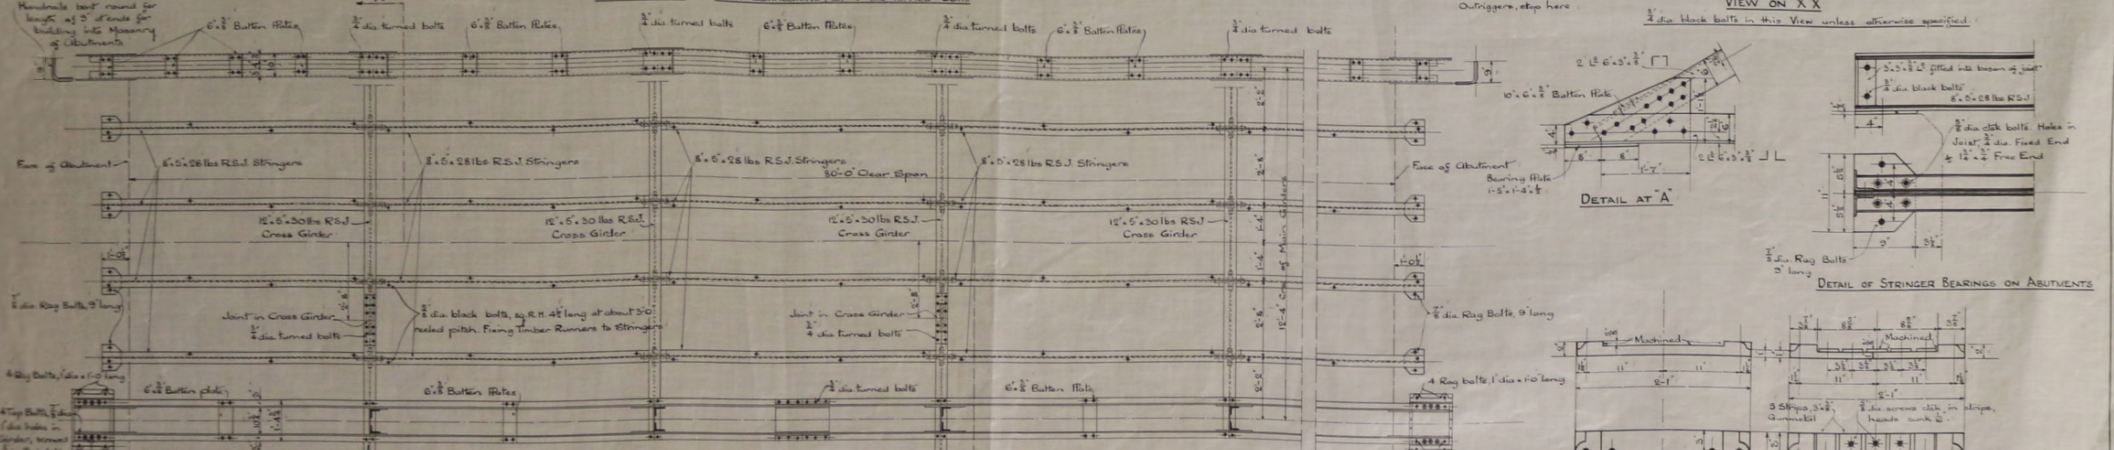 Handrails bent round for
length of 9" at ends for
building into Masonry
of Abutments
6" × 3/8" Batten Plates
3/4" dia turned bolts
6" × 3/8" Batten Plates
3/4" dia turned bolts
6" × 3/8" Batten Plates
3/4" dia turned bolts
6" × 3/8" Batten Plates
3/4" dia turned bolts
Outriggers, stop here
VIEW ON X X
3/4" dia black bolts in this View unless otherwise specified.
9"
Face of Abutment
8" × 5" × 28 lbs R.S.J. Stringers
8" × 5" × 28 lbs R.S.J. Stringers
8" × 5" × 28 lbs R.S.J. Stringers
8" × 5" × 28 lbs R.S.J. Stringers
80'-0" Clear Span
Face of Abutment
12" × 5" × 30 lbs R.S.J.
Cross Girder
12" × 5" × 30 lbs R.S.J.
Cross Girder
12" × 5" × 30 lbs R.S.J.
Cross Girder
12" × 5" × 30 lbs R.S.J.
Cross Girder
2'-2"
2'-8"
1'-4"
1'-4"
2'-8"
2'-2"
12'-4" Crs of Main Girders
2'-8"
2'-8"
dia. Rag Bolts, 9" long
Joint in Cross Girder
3/4" dia. turned bolts
dia. black bolts, sq. R.H. 4 1/2" long at about 3'-0"
reeled pitch. Fixing Timber Runners to Stringers
Joint in Cross Girder
3/4" dia turned bolts
dia Rag Bolts, 9" long
4 Rag Bolts, 1" dia × 1'-0" long
6" × 3/8" Batten plates
6" × 3/8" Batten Plates
3/4" dia turned bolts
6" × 3/8" Batten Plate
4 Rag bolts, 1" dia × 1'-0" long
10" × 6" × 3/8" Batten Plate
Bearing Plate
1'-7"
DETAIL AT "A"
3/4" dia black bolts
8" × 5" × 28 lbs R.S.J.
4"
dia csk bolts. Holes in
Joist, 3/4" dia. Fixed End
Free End
11"
9"
3 1/2"
dia. Rag Bolts
9" long
DETAIL OF STRINGER BEARINGS ON ABUTMENTS
Machined
11" 11"
2'-1"
Machined
11" 11"
2'-1"
3 Strips, 3" × 3/8",
Gunmetal
dia screws csk, in strips,
heads sunk